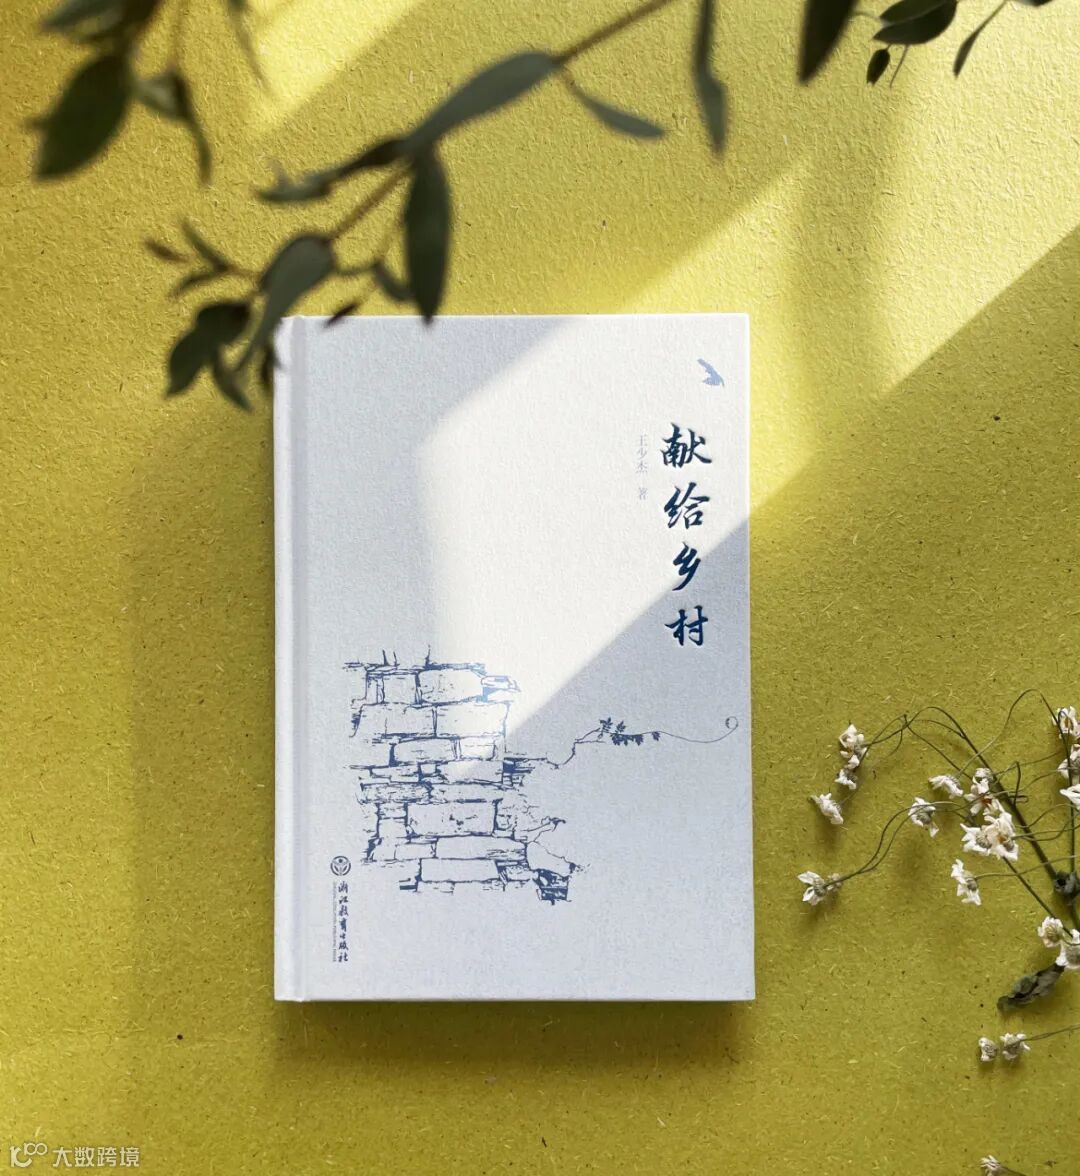 献给乡村
王少杰 著
浙江教育出版社
大数跨境